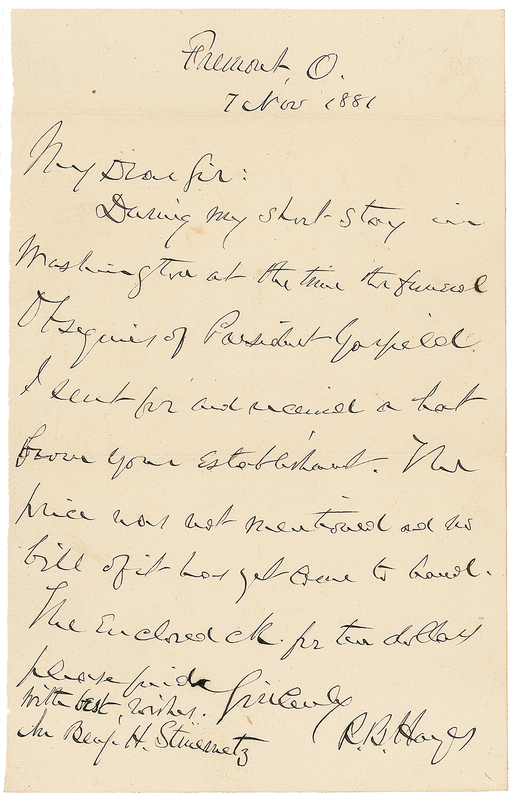 Fremont, O.
7 Nov 1881
My Dear Sir:
During my short stay in
Washington at the time the funeral
Obsequies of President Garfield
I sent for and received a hat
from your establishment. The
price was not mentioned and no
bill of it has yet come to hand.
The Enclosed ck. for ten dollars
please find. Sincerely
With best wishes.
R.B. Hayes
Mr Benj. H. Stinemetz